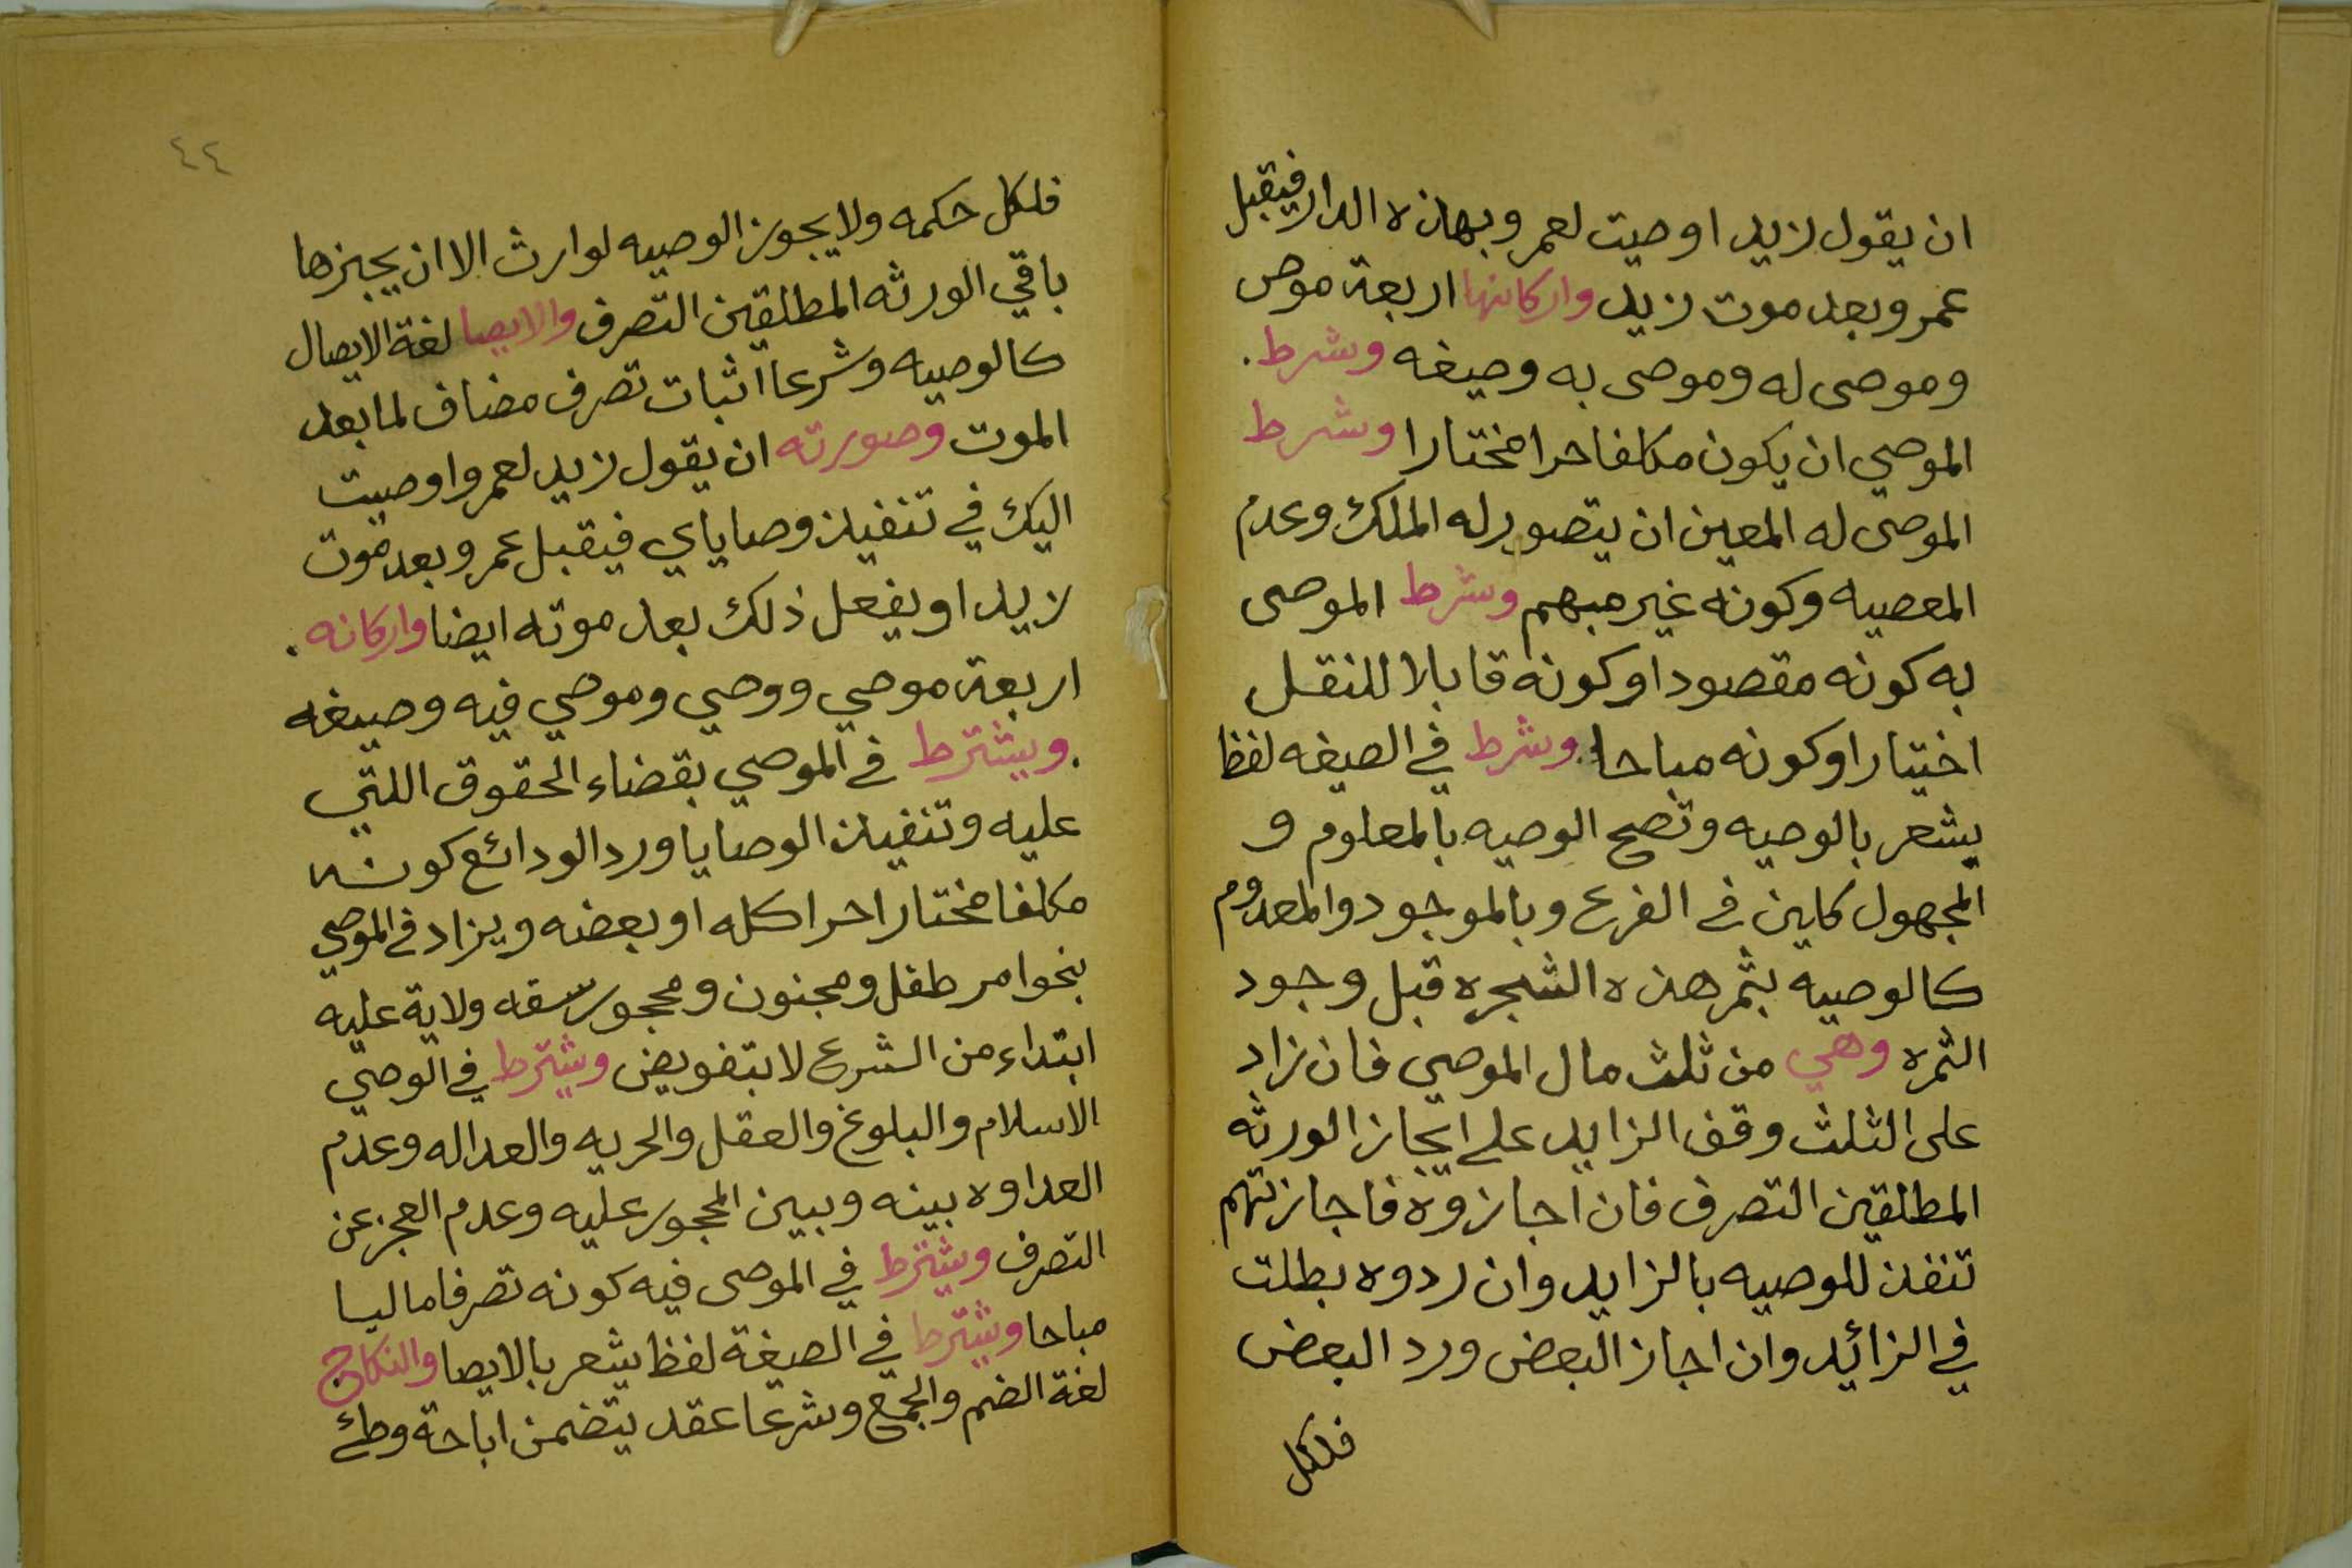 ان يقول زيد اوصيت لعمرو بهذه الدار فيقبل
عمرو بعد موت زيد واركانها اربعة موص
وموصى له وموصى به وصيغه وشرط.
الموصي ان يكون مكلفا حرا مختارا وشرط
الموصى له المعين ان يتصور له الملك وعدم
المعصيه وكونه غير مبهم وشرط الموصى
به كونه مقصودا وكونه قابلا للنقل
اختيارا وكونه مباحا وشرط في الصيغه لفظ
يشعر بالوصيه وتصح الوصيه بالمعلوم و
المجهول كاين في الفرع وبالموجود والمعدوم
كالوصيه بثمر هذه الشجره قبل وجود
الثمره وهي من ثلث مال الموصي فان زاد
على الثلث وقف الزايد على ايجاز الورثه
المطلقين التصرف فان اجازوه فاجازتهم
تنفذ للوصيه بالزايد وان ردوه بطلت
في الزائد وان اجاز البعض ورد البعض
فلكل
٤٤
فلكل حكمه ولا يجوز الوصيه لوارث الا ان يجيزها
باقي الورثه المطلقين التصرف والايصا لغة الايصال
كالوصيه وشرعا اثبات تصرف مضاف لما بعد
الموت وصورته ان يقول زيد لعمرو اوصيت
اليك في تنفيذ وصاياي فيقبل عمرو بعد موت
زيد او يفعل ذلك بعد موته ايضا واركانه.
اربعة موصي ووصي وموصي فيه وصيغه
.ويشترط في الموصي بقضاء الحقوق اللتي
عليه وتنفيذ الوصايا ورد الودائع كونه
مكلفا مختارا حرا كله او بعضه ويزاد في الموصي
بنحو امر طفل ومجنون ومحجور سفه ولاية عليه
ابتداء من الشرع لا بتفويض ويشترط في الوصي
الاسلام والبلوغ والعقل والحريه والعداله وعدم
العداوه بينه وبين المحجور عليه وعدم العجز عن
التصرف ويشترط في الموصى فيه كونه تصرفا ماليا
مباحا ويشترط في الصيغة لفظ يشعر بالايصا والنكاح
لغة الضم والجمع وشرعا عقد يتضمن اباحة وطئ